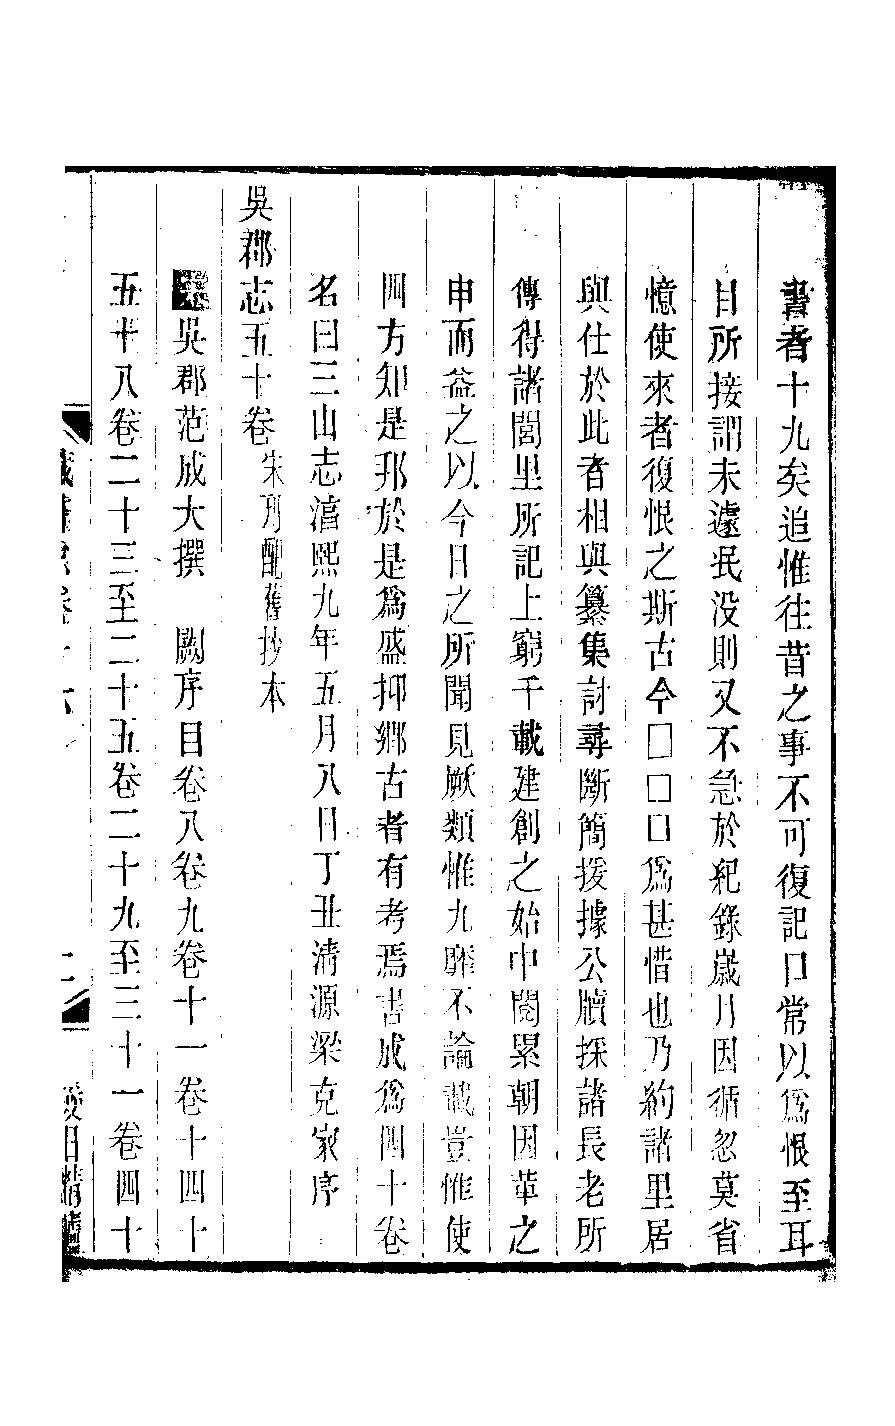 書者十九矣追惟往昔之事不可復記口常以爲恨至耳
目所接謂未遽氓没則又不急於紀錄歲月因循忽莫省
憶使來者復恨之斯古今□□□爲甚惜也乃約諸里居
與仕於此者相與纂集討尋斷簡援據公牘採諸長老所
傳得諸閭里所記上窮千載建創之始中閱累朝因革之
申而益之以今日之所聞見厥類惟九靡不論載豈惟使
四方知是邦於是爲盛抑鄉古者有考焉書成爲四十卷
名曰三山志淳熙九年五月八日丁丑清源梁克家序
吳郡志五十卷宋刋配舊抄本
宋吳郡范成大撰　闕序目卷八卷九卷十一卷十四十
五十八卷二十三至二十五卷二十九至三十一卷四十